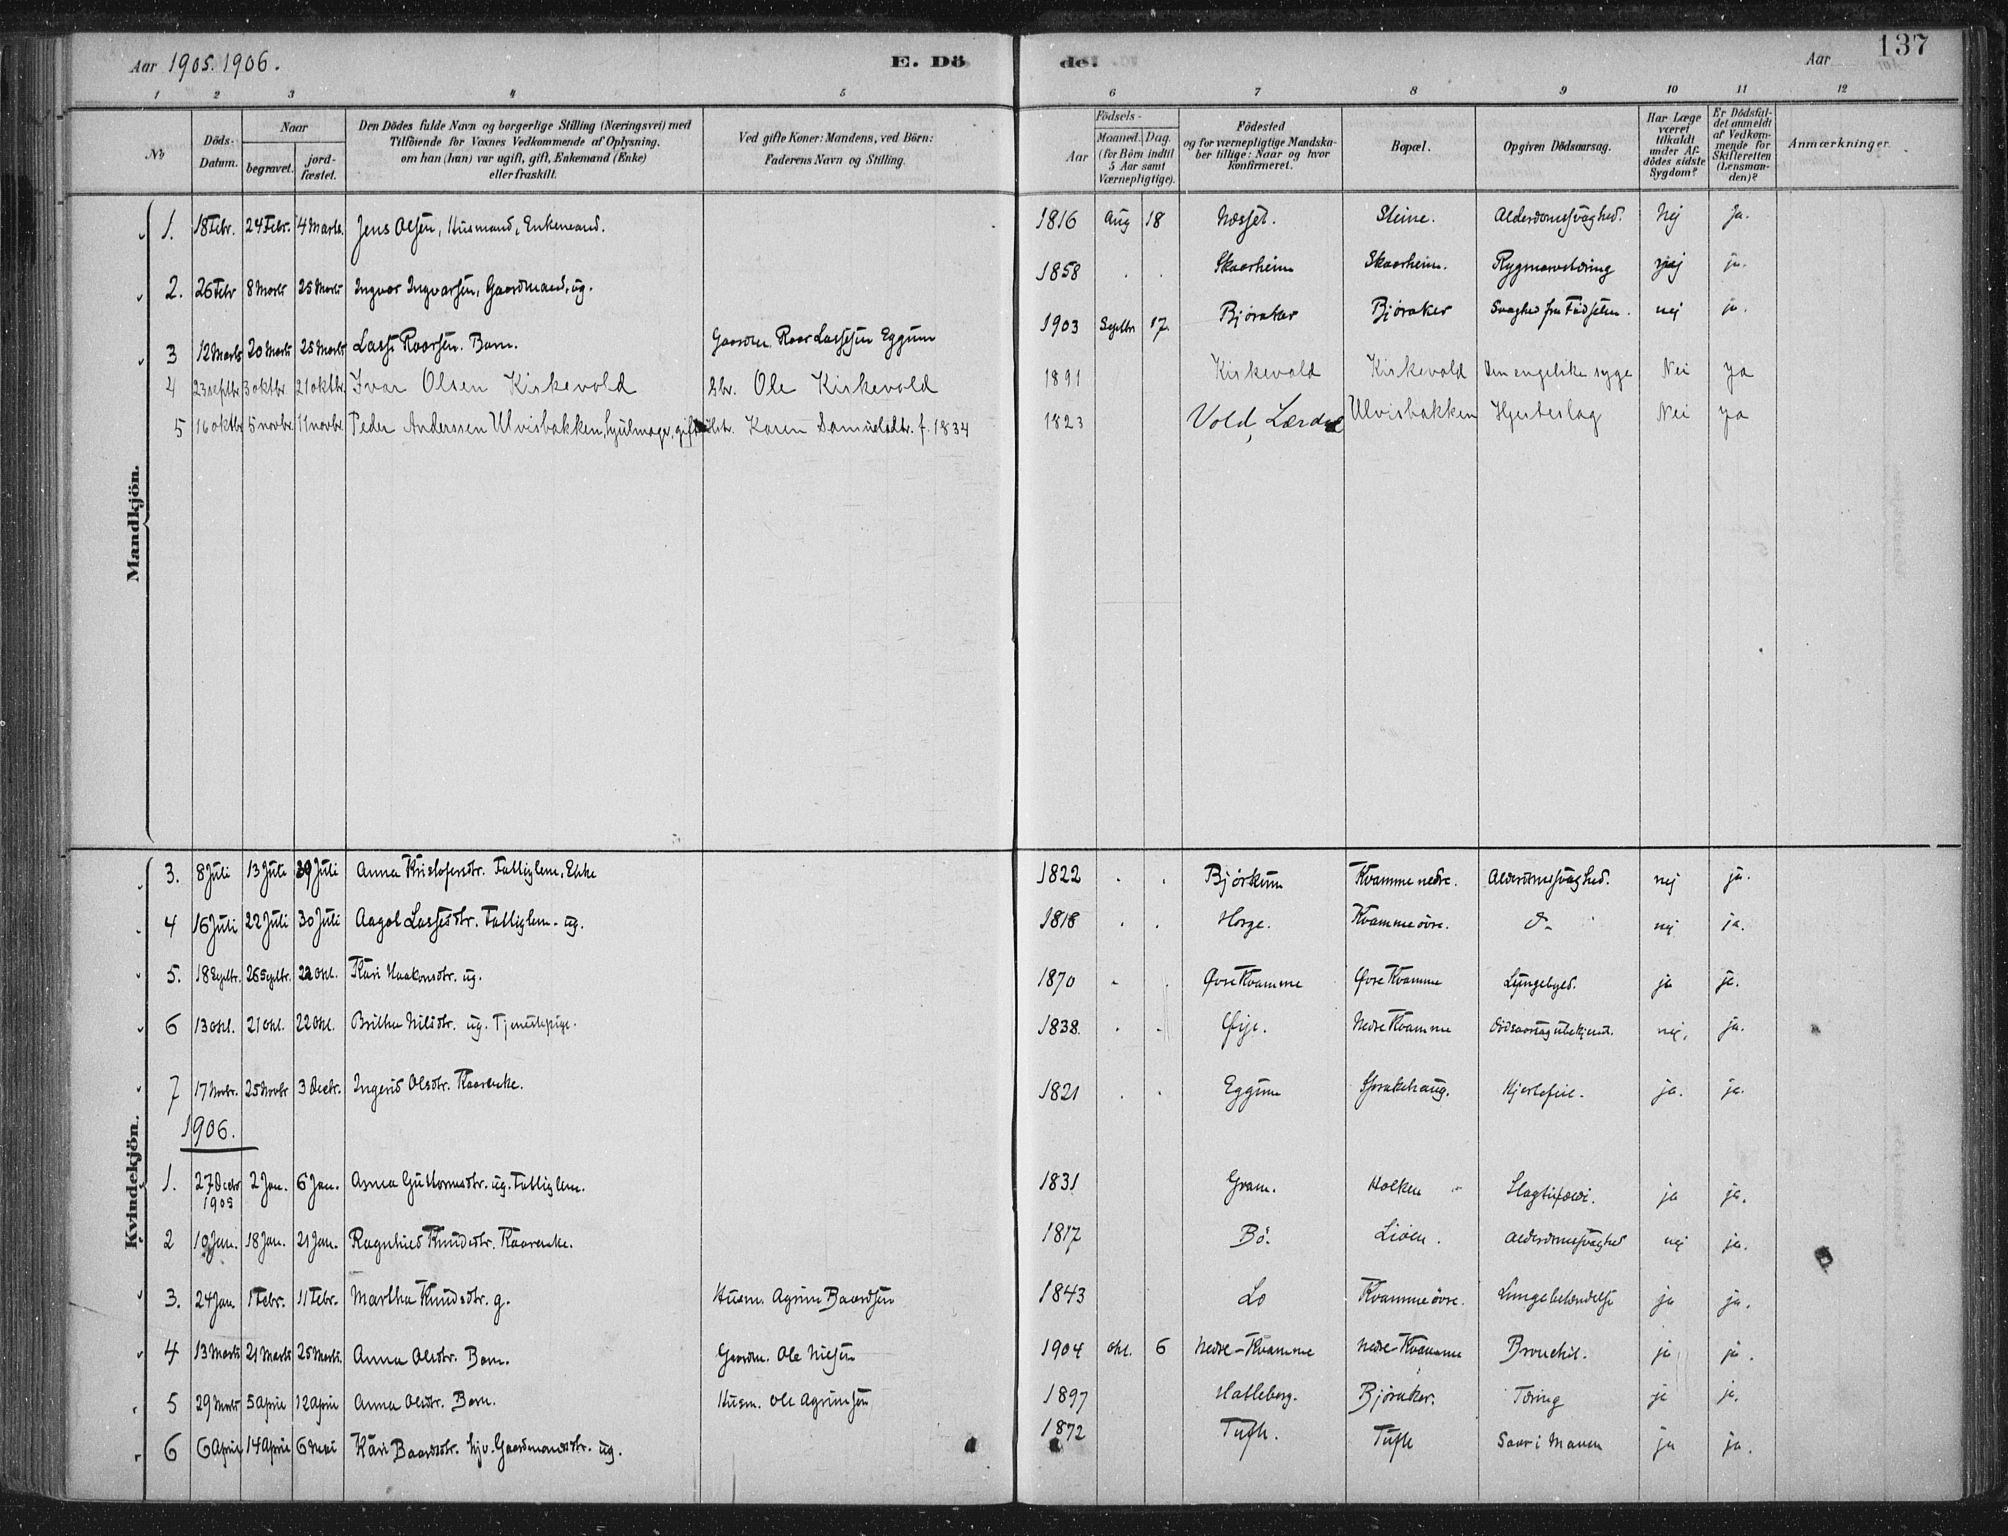 Aar 1905. 1906.
E. Dö
de.
Aar
137
1 2 3 4 5 6 7 8 9 10 11 12
No
Döds-Datum.
Naar
begravet.
jord-fæstet.
Den Dödes fulde Navn og borgerlige Stilling (Næringsvei) med
Tilföiende for Voxnes Vedkommende af Oplysning.
om han (hun) var ugift, gift, Enkemand (Enke)
eller fraskilt.
Ved gifte Koner: Mandens, ved Börn:
Faderens Navn og Stilling.
Födsels-
Aar
Maaned. Dag.
(for Börn indtil
5 Aar samt
Værnepligtige).
Födested
og for værnepligtige Mandska-
ber tillige: Naar og hvor
Konfirmeret.
Bopæl.
Opgiven Dödsaarsag.
Har Læge
været
tilkaldt
under Af-
dödes sidste
Sygdom?
Er Dödsfal-
det anmeldt
af Vedkom-
mende for
Skifteretten
(Lensman-
den)?
Anmærkninger.
Mandkjön.
1. 18 Febr. 24 Febr. 4 Marts. Jens Olsen, Husmand, Enkemand. 1816 Aug 18 Næsset. Steine. Alderdomssvaghed. Nej Ja.
2. 26 Febr 8 Marts 25 Marts Ingvar Ingvarsen, Gaardmand, ug. 1858 . . Skaarheim Skaarheim. Rygmarvstæring nej ja.
3 12 Marts 20 Marts 25 Marts Lasse Roarsen. Barn. Gaardm. Roar Lassesen Eggum 1903 Septbr 17. Bjøraker Bjøraker Svaghed fra Fødselen. nej ja.
4 23 septbr 3 oktbr. 21 oktbr. Ivar Olsen Kirkevold Gbr. Ole Kirkevold 1891 Kirkevold Kirkevold Den engelske syge Nei Ja
5 16 oktbr 5 novbr. 11 novbr. Peder Anderssen Ulvisbakken, hjulmager, gift Karen Samuelsdtr. f. 1834 1823 Vold, Lærdal Ulvisbakken Hjerteslag Nei Ja
Kvindekjön.
3. 8 Juli 13 Juli 29 Juli Anna Kristofersdtr. Fattiglem, Enke 1822 . . Bjørkum Kvamme nedre. Alderdomssvaghed. nej ja.
4 16 Juli 22 Juli 30 Juli Aagot Lassesdtr. Fattiglem. ug. 1818 . . Horge. Kvamme övre. d- nej ja.
5. 18 Septbr. 26 Septbr. 22 Okt. Kari Haakonsdtr. ug. 1870 . . Øvre Kvamme Øvre Kvamme Lungebyld. ja ja.
6 13 Okt. 21 Okt. 22 Okt. Britha Nilsdtr. ug. Tjenestepige. 1838. . . Øije. Nedre Kvamme Dödsaarsag ubekjendt. nej. ja.
7 17 Novbr. 25 Novbr 3 Decbr. Ingerid Olsdtr. Kaarenke. 1821 . . Eggum Sprakehaug. Hjertefeil. ja. ja.
1906.
1. 27 Decbr 1905 2 Jan. 6 Jan. Anna Guttormsdtr. ug. Fattiglem. 1831 Gram. Holken Slagtilfælde. ja ja.
2 10 Jan. 18 Jan. 21 Jan. Ragnhild Knudsdtr. Kaarenke. 1817 Bö. Lien. Alderdomssvaghed nej ja.
3. 24 Jan. 1 Febr. 11 Febr. Martha Knudsdtr. g. Husm. Agrim Baardsen 1843 Lo Kvamme övre. Lungebetændelse ja ja.
4 13 Marts 21 Marts 25 Marts. Anna Olsdtr. Barn. Gaardm. Ole Nilsen 1904 Okt. 6 Nedre-Kvamme Nedre-Kvamme Bronchit. ja ja.
5 29 Marts 5 April 12 April Anna Olsdtr. Barn. Husm. Ole Agrimsen 1897 Hatleberg. Bjøraker. Tæring ja ja.
6 6 April 14 April 6 Mai Kari Baardsdtr. hjv. Gaardmandsdtr. ug. 1872 Tufte. Tufte Saar i Maven ja ja.